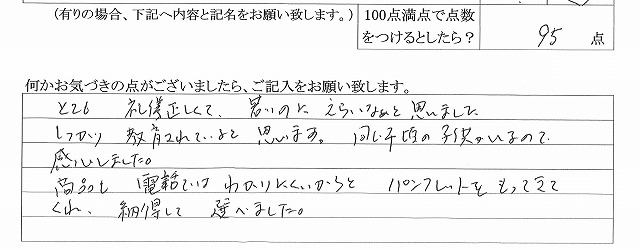 (有りの場合、下記へ内容と記名をお願い致します。)
100点満点で点数
をつけるとしたら?
95 点
何かお気づきの点がございましたら、ご記入をお願い致します。
とても 礼儀正しくて、若いのに えらいなぁと思いました
しっかり 教育されているなと 思います。 同じ年頃の子供がいるので
感心しました。
商品も 電話では わかりにくいからと パンフレットをもってきて
くれ、納得して 選べました。